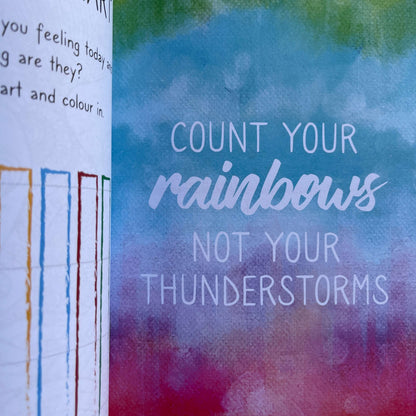 you feeling today
g are they?
art and colour in.
COUNT YOUR
rainbows
NOT YOUR
THUNDERSTORMS